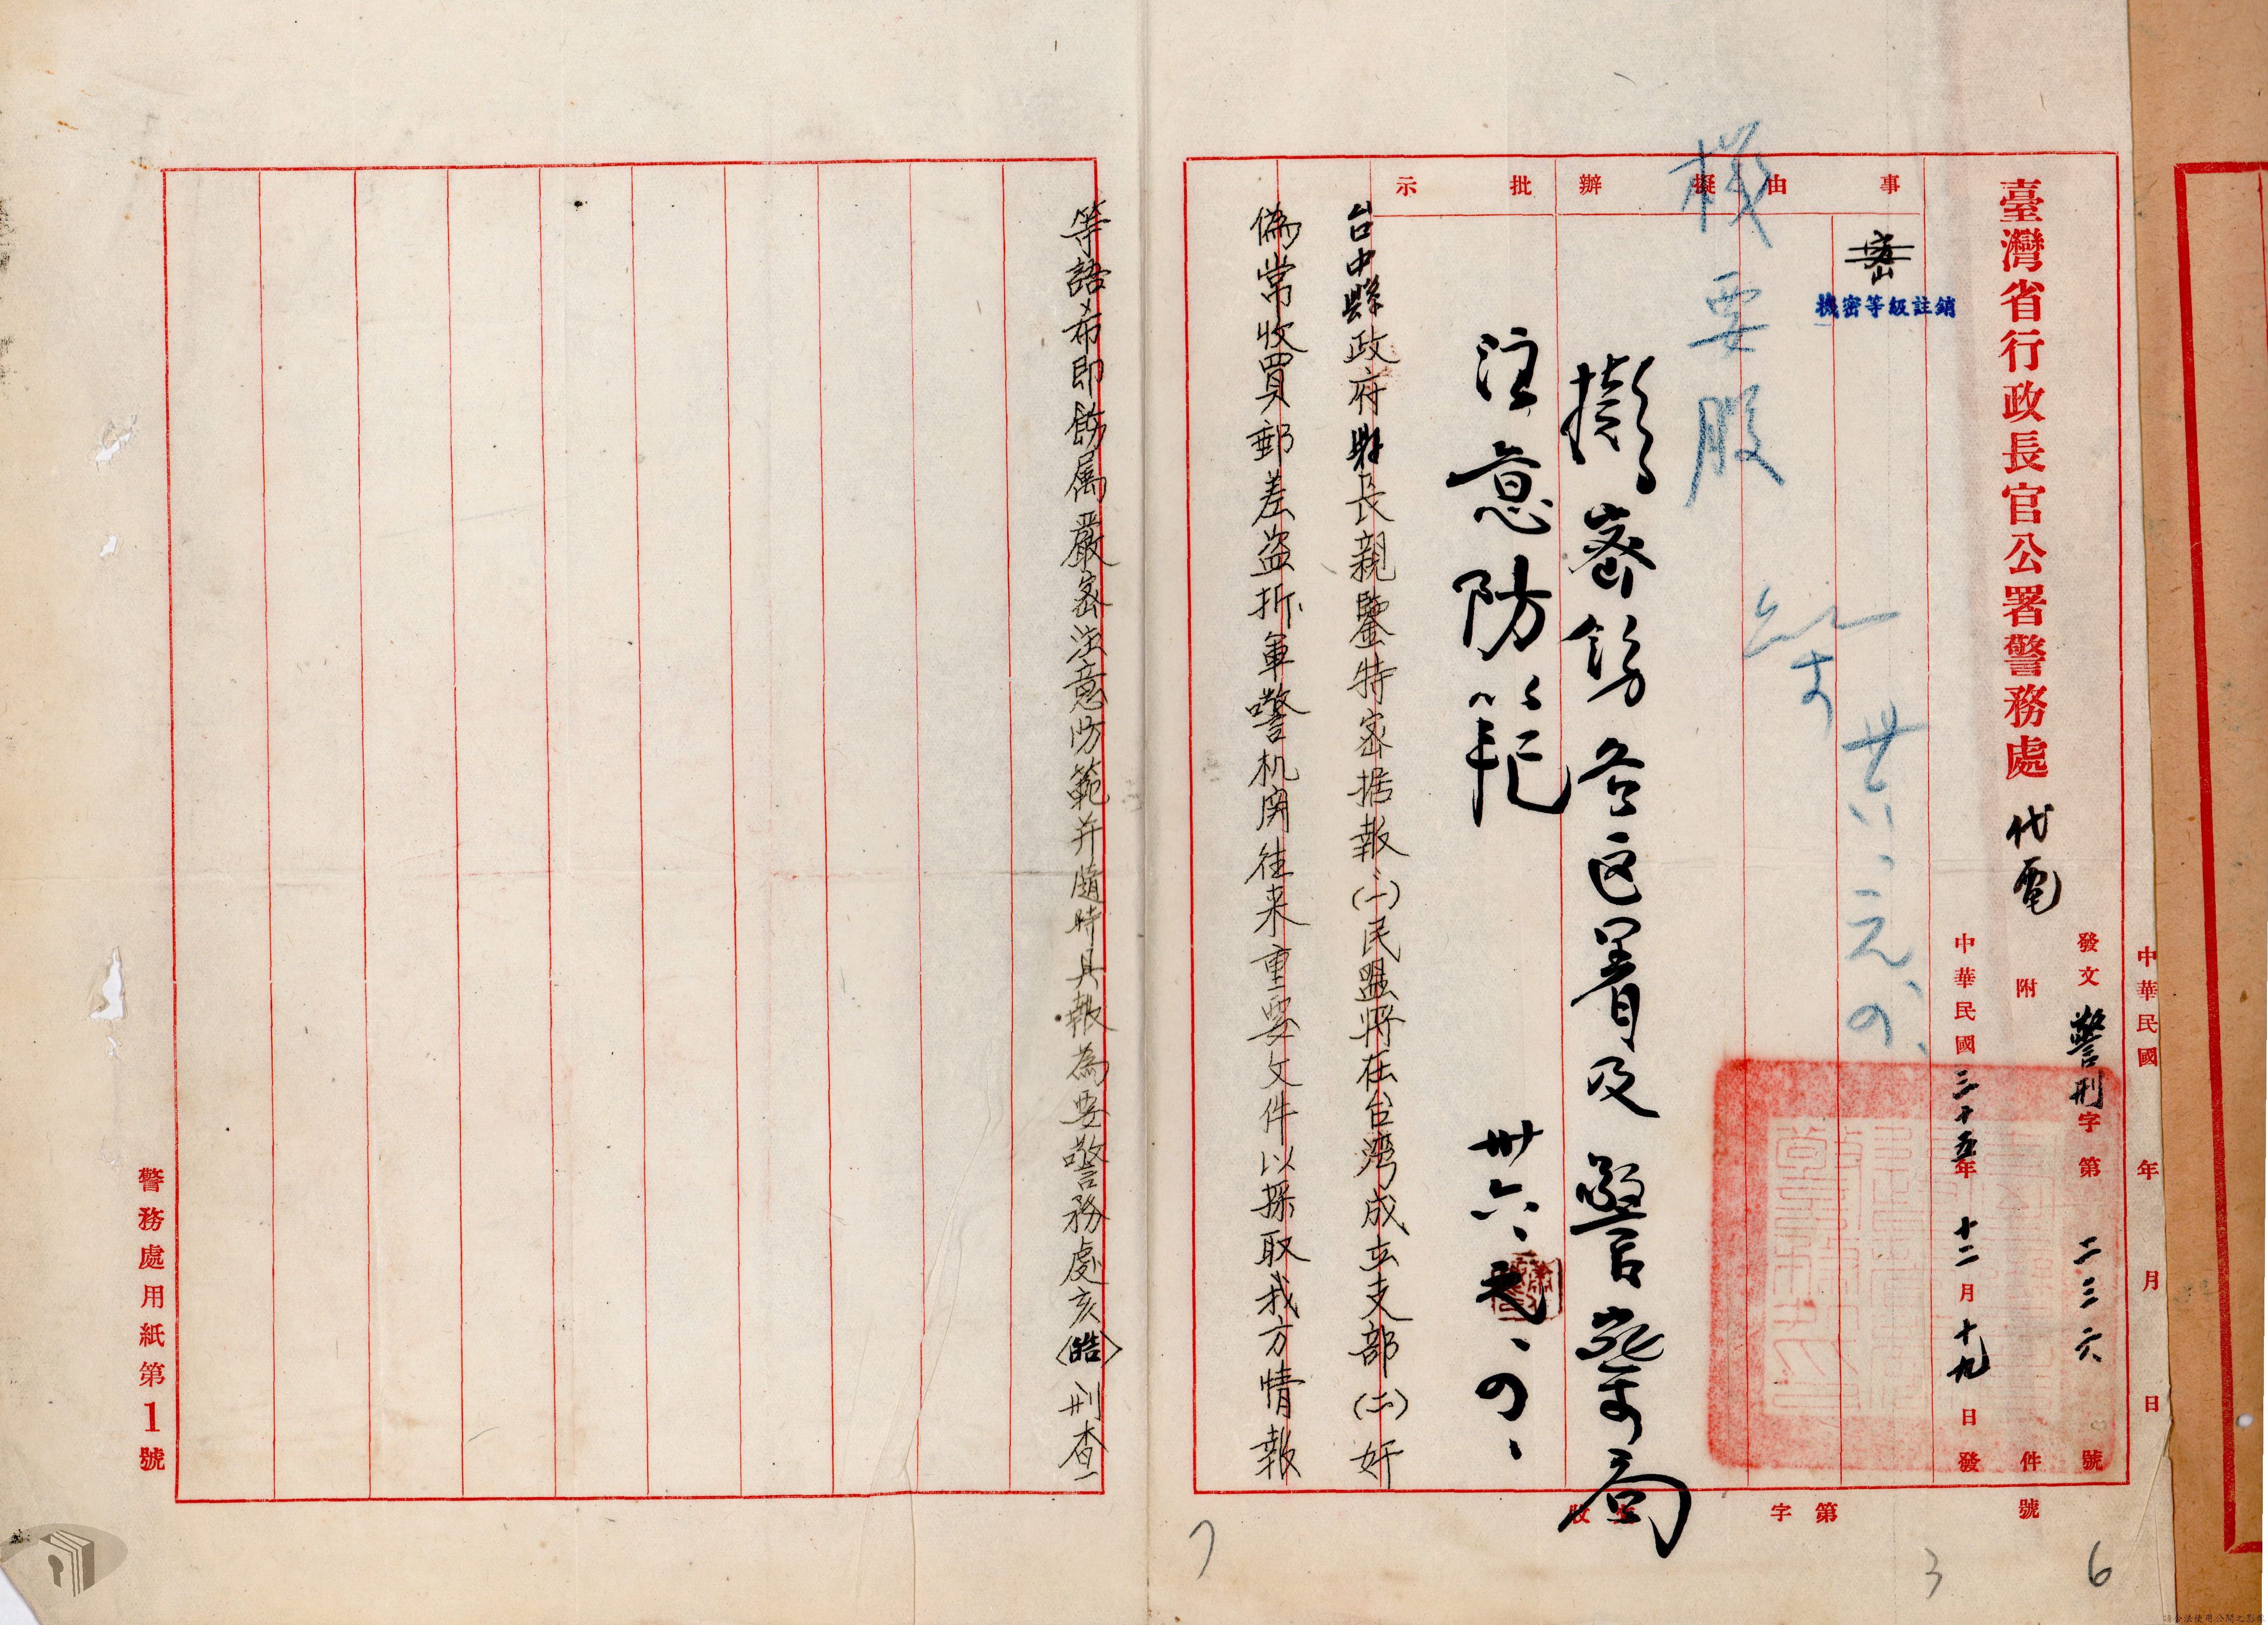 中華民國 年 月 日
發文 警刑字第 二三六 號
臺灣省行政長官公署警務處 代電
附 件
中華民國三十五年十二月十九日發
事由
擬辦
批示
密
機密等級註銷
機要股
卅六、元、四、
擬密飭各區署及警察局
注意防範
卅六、元、四、
台中縣政府縣長親鑒特密据報(一)民盟將在台灣成立支部(二)奸
偽常收買郵差盗拆軍警机関往来重要文件以採取我方情報
收文 字第 號
7
3
6
等語希即飭属嚴密注意防範并隨時具報為要警務處亥〈皓〉刑查一
警務處用紙第1號